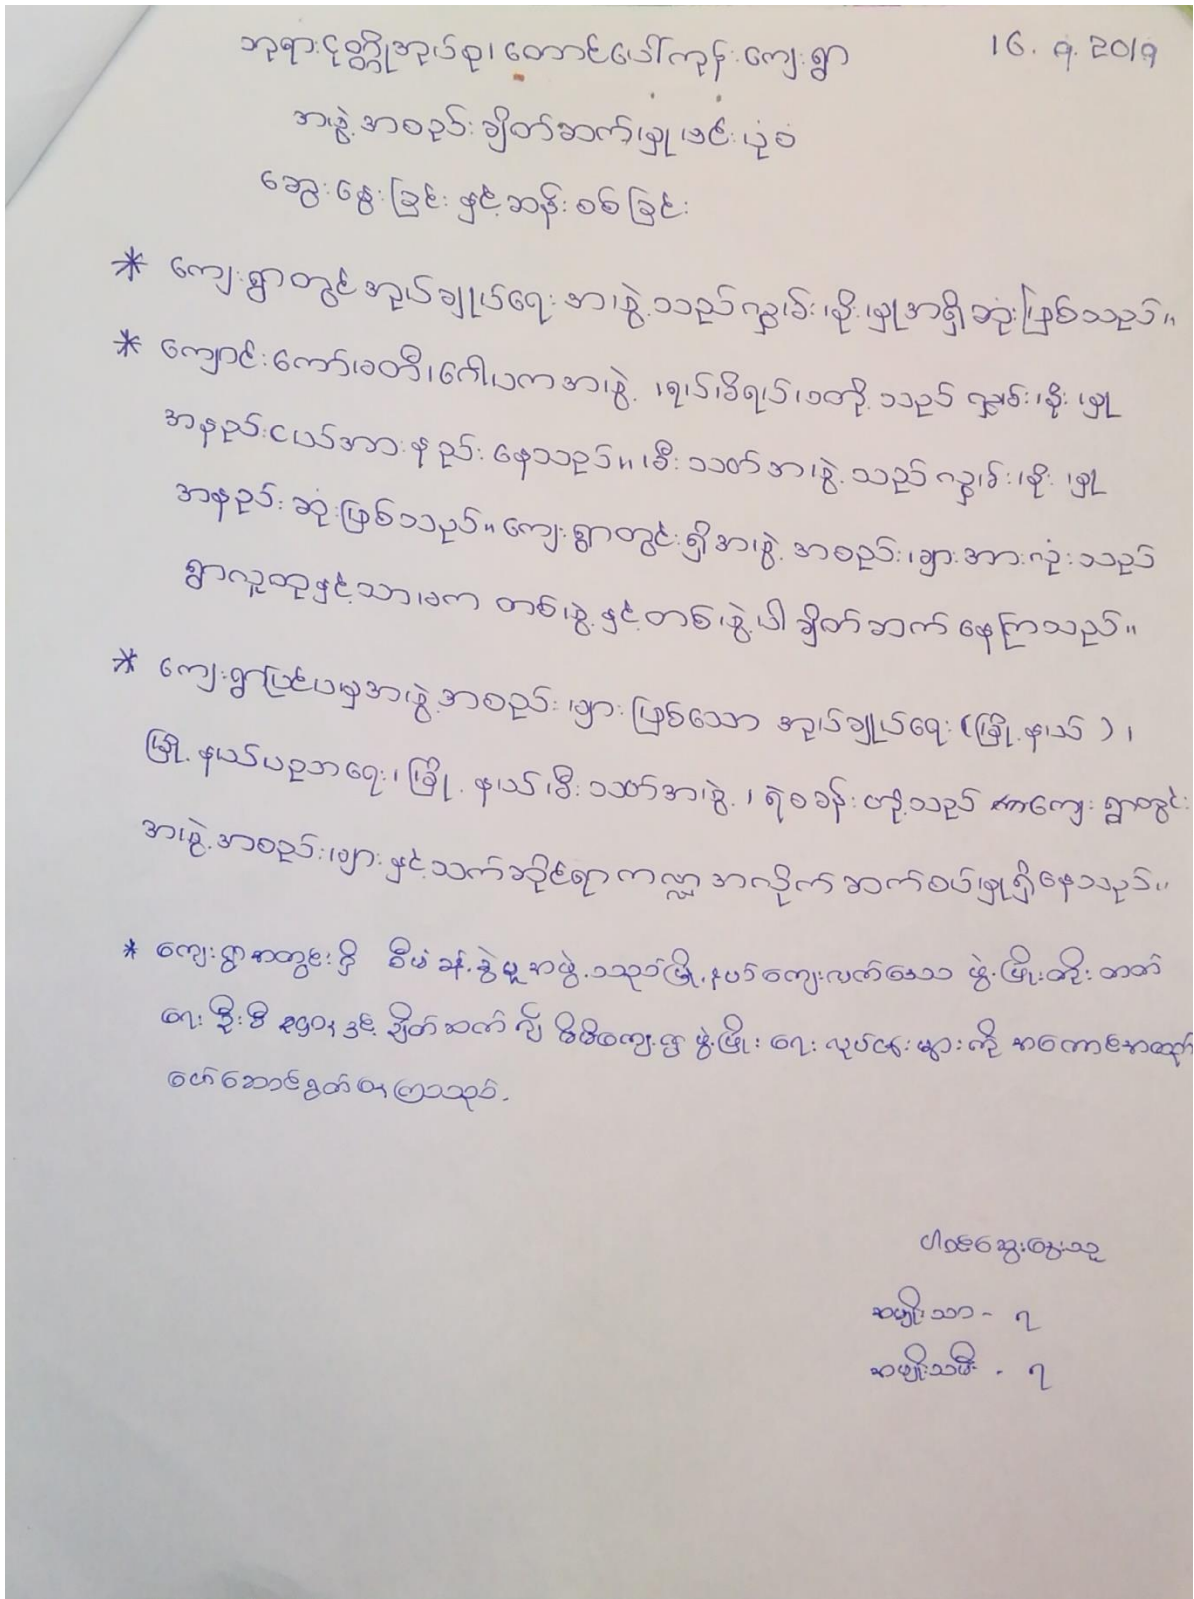 ဘုရားငုတ္တိုအုပ်စု၊ တောင်ပေါ်ကုန်းကျေးရွာ 16. 9. 2019
အဖွဲ့အစည်းချိတ်ဆက်မှုမြင်းပုံစံ
ဆွေးနွေးခြင်းနှင့်ဆန်းစစ်ခြင်း
* ကျေးရွာတွင်အုပ်ချုပ်ရေးအဖွဲ့သည်လွှမ်းမိုးမှုအရှိဆုံးဖြစ်သည်။
* ကျောင်းကော်မတီ၊ ဂေါပကအဖွဲ့၊ ရပ်မိရပ်ဖတို့သည် လွှမ်းမိုးမှု
အနည်းငယ်အားနည်းနေသည်။ မီးသတ်အဖွဲ့သည်လွှမ်းမိုးမှု
အနည်းဆုံးဖြစ်သည်။ ကျေးရွာတွင်းရှိအဖွဲ့အစည်းများအားလုံးသည်
ရွာလူထုနှင့်သာမက တစ်ဖွဲ့နှင့်တစ်ဖွဲ့ပါချိတ်ဆက်နေကြသည်။
* ကျေးရွာပြင်ပမှအဖွဲ့အစည်းများဖြစ်သော အုပ်ချုပ်ရေး (မြို့နယ်)၊
မြို့နယ်ပညာရေး၊ မြို့နယ်မီးသတ်အဖွဲ့၊ ရဲစခန်းတို့သည် ကျေးရွာတွင်း
အဖွဲ့အစည်းများနှင့်သက်ဆိုင်ရာကဏ္ဍအလိုက်ဆက်စပ်မှုရှိနေသည်။
* ကျေးရွာအတွင်းရှိ စီမံခန့်ခွဲမှုအဖွဲ့သည်မြို့နယ်ကျေးလက်ဒေသ ဖွံ့ဖြိုးတိုးတတ်
ရေးဦးစီးဌာနနှင့်ချိတ်ဆက်၍ မိမိကျေးရွာဖွံ့ဖြိုးရေးလုပ်ငန်းများကိုအကောင်အထည်
ဖော်ဆောင်ရွက်နေကြသည်.
ပါဝင်ဆွေးနွေးသူ
အမျိုးသား - ၇
အမျိုးသမီး - ၇